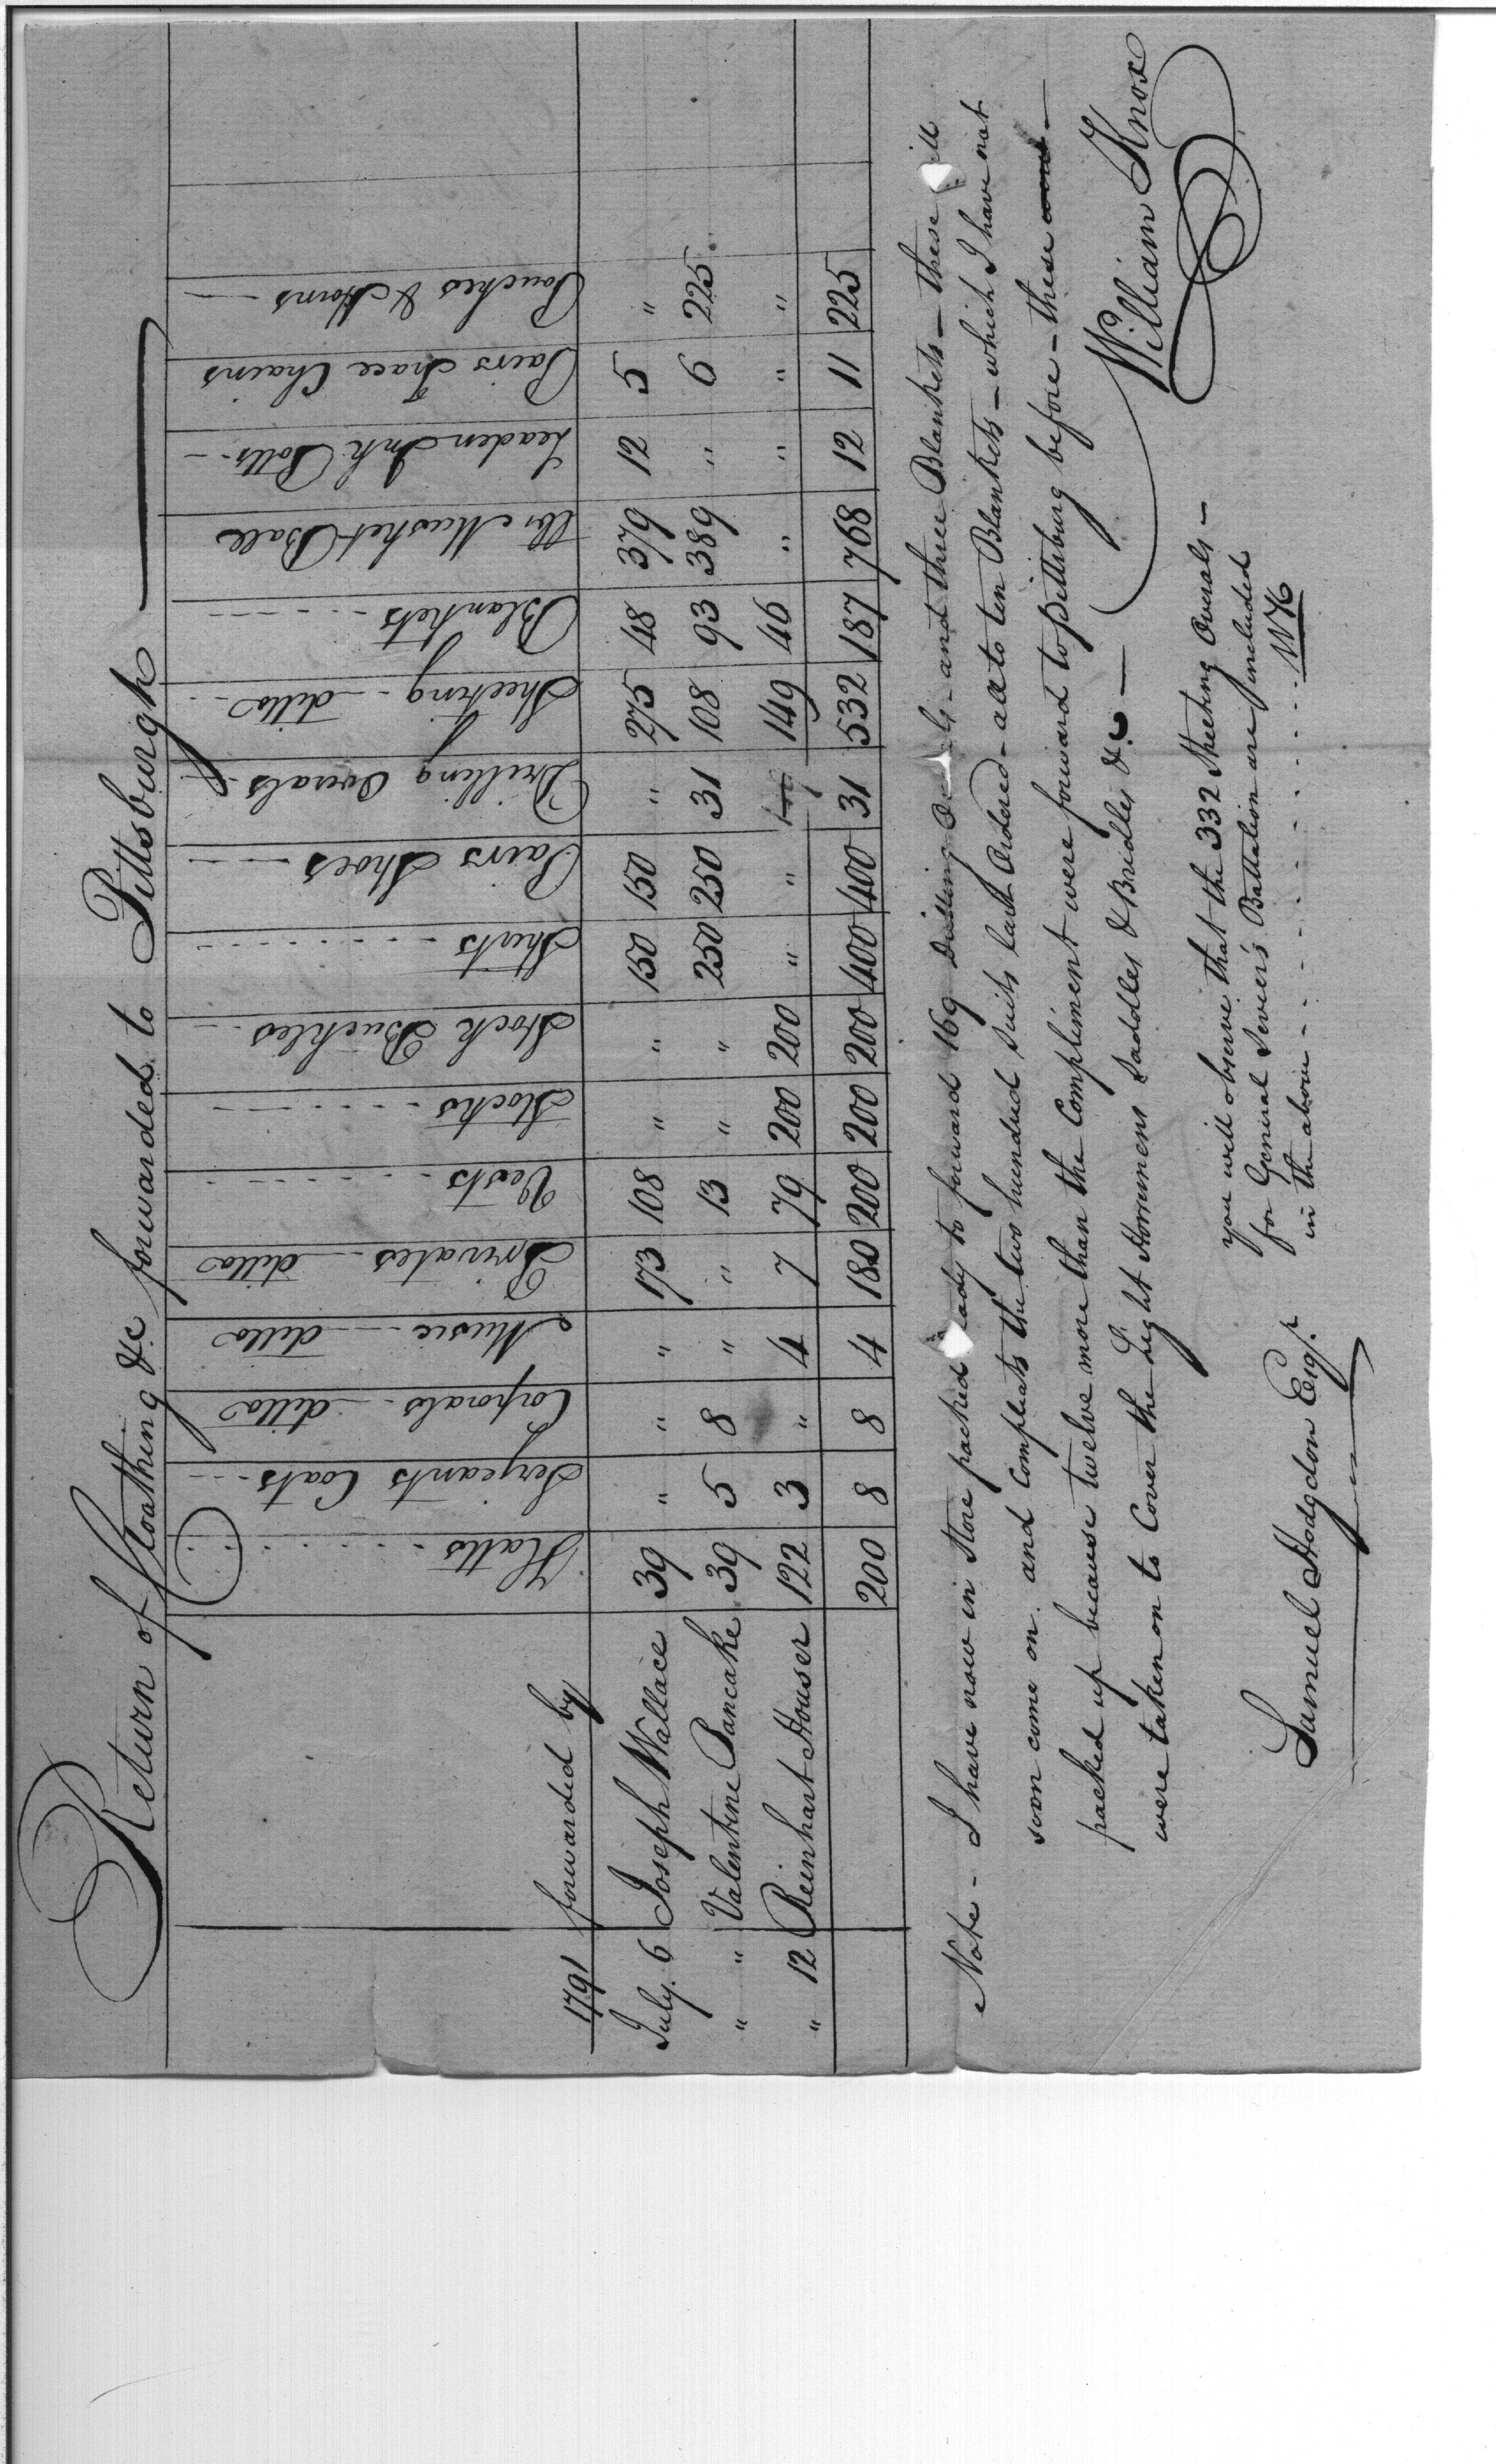 Return of Cloathing &c forwarded to Pittsburgh
1791 forwarded by Hatts Serjeants Coats Corporals ditto Music ditto Privates ditto Vests Stocks Stock Buckles Shirts Pairs Shoes Drilling Overals Sheeting ditto Blankets lbs Musket Ball Leaden Ink Potts Pairs Trace Chains Pouches & Horns
July. 6 Joseph Wallace 39 " " " 173 108 " " 150 150 " 275 48 379 12 5 "
" " Valentine Pancake 39 5 8 " " 13 " " 250 250 31 108 93 389 " 6 225
" 12 Reinhart Houser 122 3 " 4 7 79 200 200 " " 149 149 46 " " " "
200 8 8 4 180 200 200 200 400 400 31 532 187 768 12 11 225
Note - I have now in Store packed ready to forward 169 Drilling Overals - and three Blankets - these will
soon come on. and Compleats the two hundred Suits last Ordered - all to ten Blankets - which I have not
packed up because twelve more than the Compliment were forward to Pittsburg before - these
were taken on to Cover the Light Horsemens Saddles & Bridles &c -
William Knox
you will observe that the 332 Sheeting Overals -
for General Sevier's Battalion are included
in the above - - - - - - - - - - WK
Samuel Hodgdon Esqr.